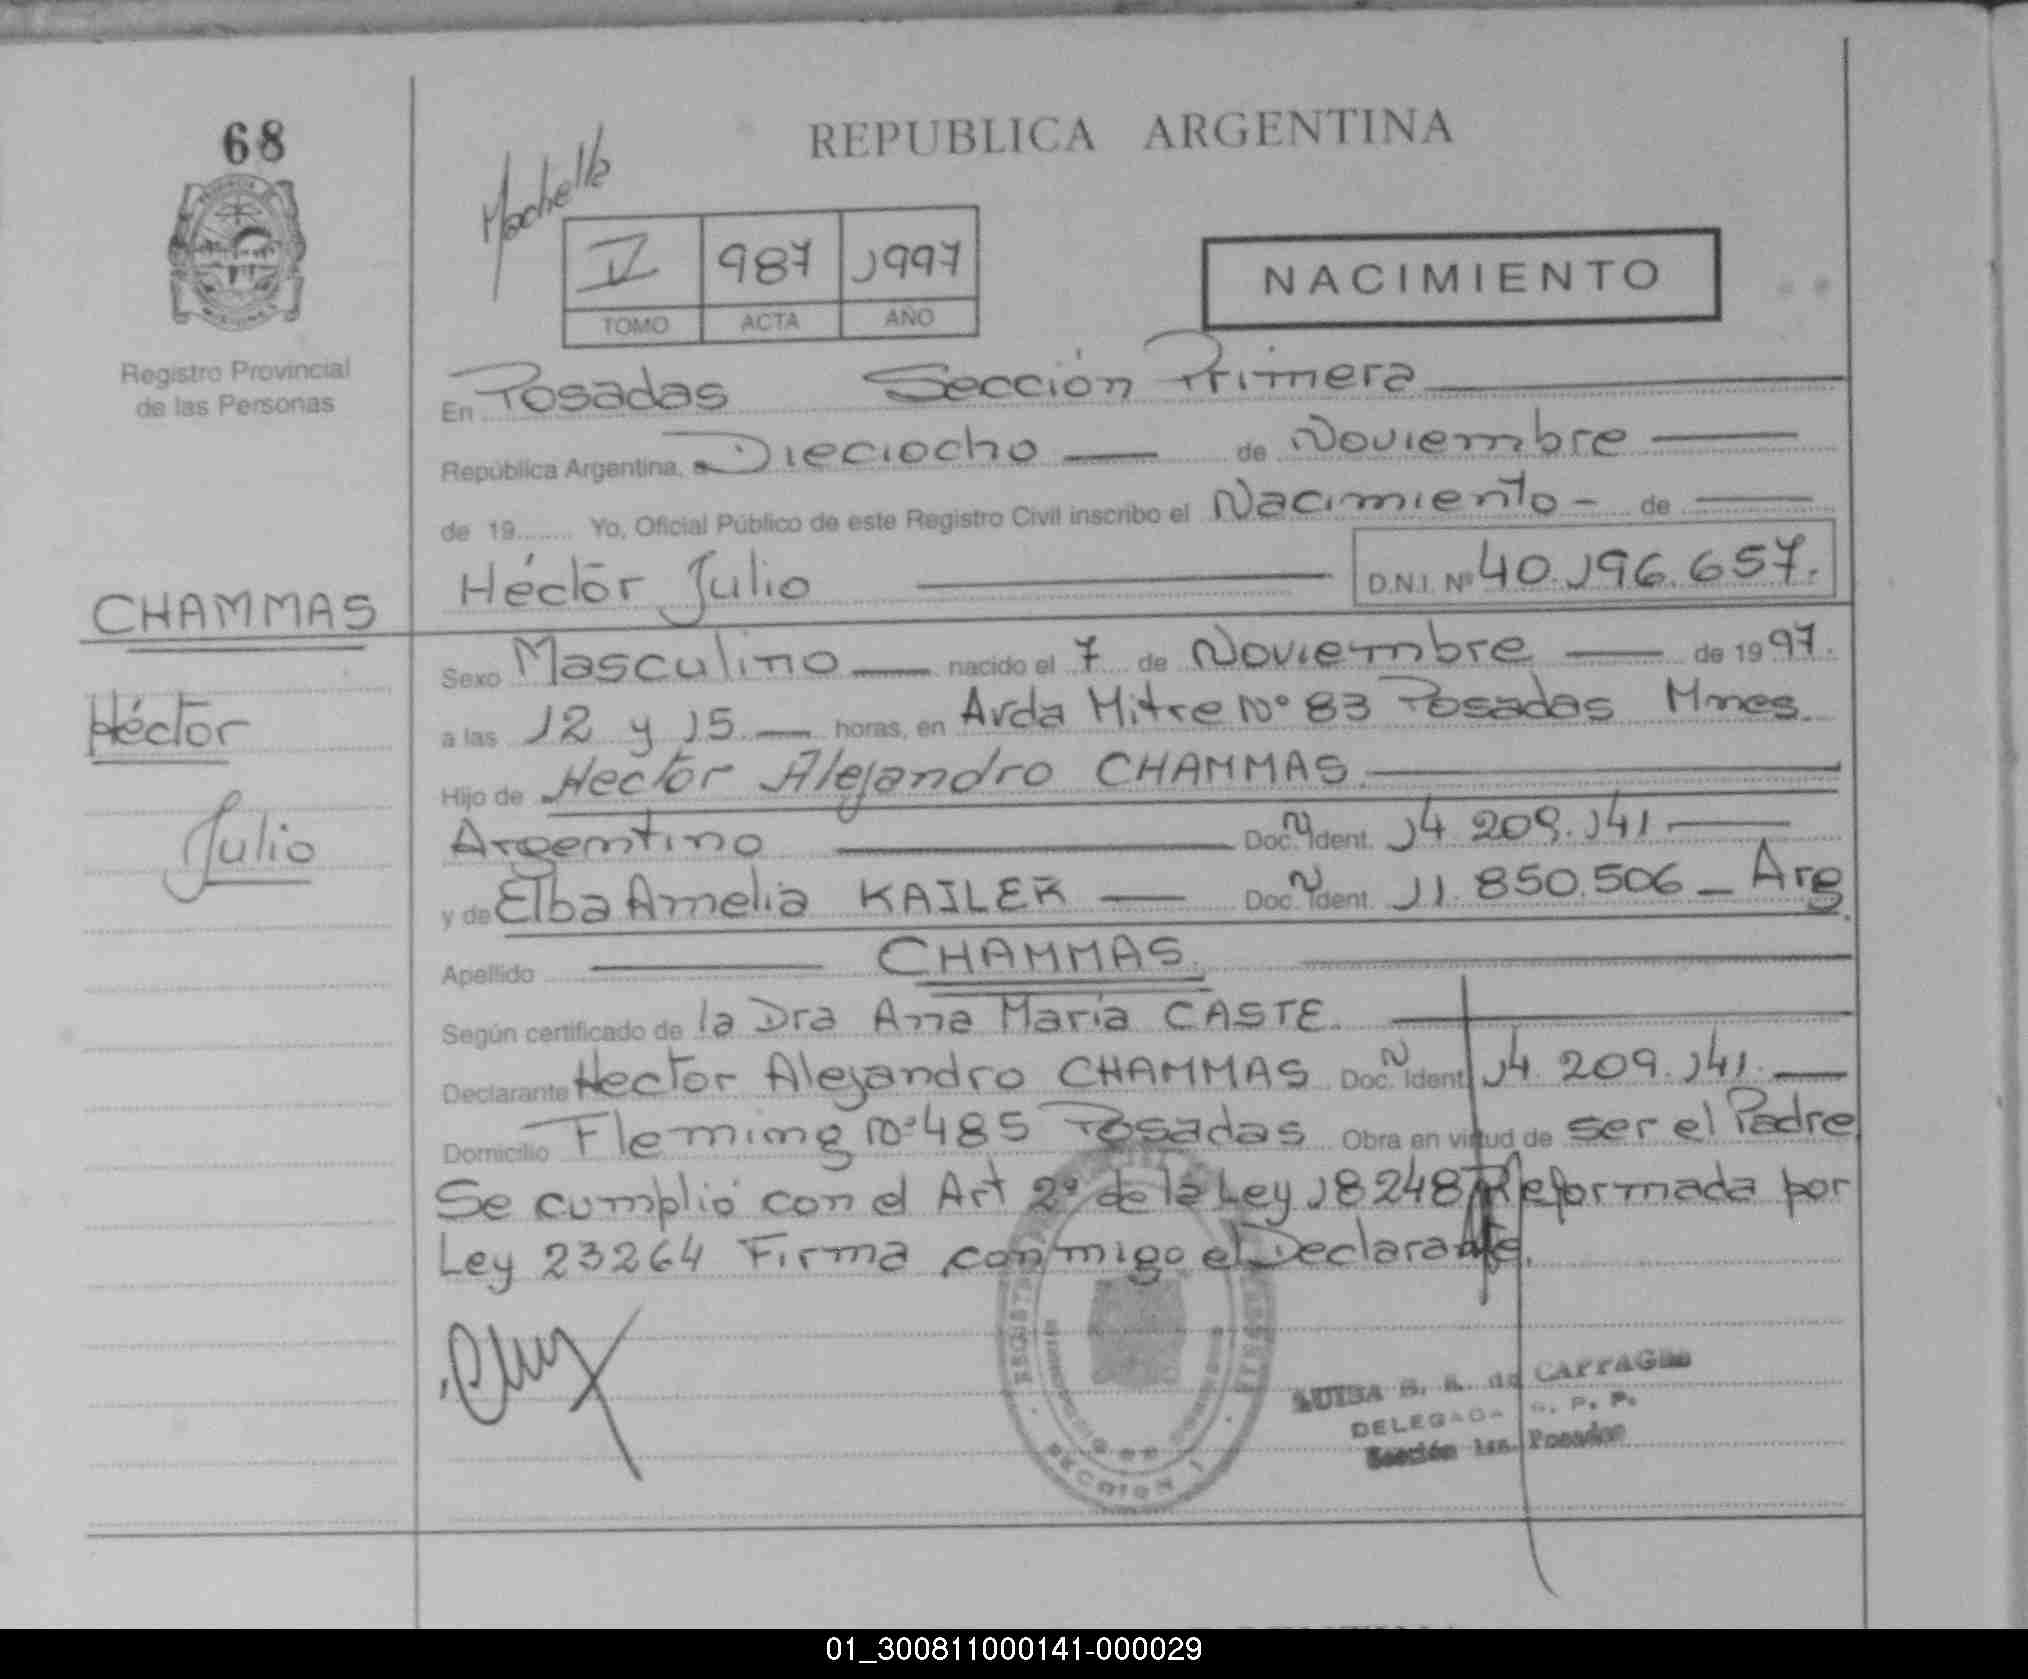 68
REPUBLICA ARGENTINA
987 1997
TOMO ACTA AÑO
NACIMIENTO
Registro Provincial
de las Personas
En Posadas Sección Primera
República Argentina, a Dieciocho de Noviembre
de 19 Yo, Oficial Público de este Registro Civil inscribo el Nacimiento - de
Héctor Julio D.N.I. Nº 40.196.657.
CHAMMAS
Héctor
Julio
Sexo Masculino nacido el 7 de Noviembre de 1997.
a las 12 y 15 horas, en Avda Mitre Nº 83 Posadas Mnes.
Hijo de Hector Alejandro CHAMMAS
Argentino Doc. N Ident. 14.209.141
y de Elba Amelia KAILER Doc. N Ident. 11.850.506 - Arg.
Apellido CHAMMAS.
Según certificado de la Dra Ana María CASTE.
Declarante Hector Alejandro CHAMMAS Doc. N Ident. 14.209.141.
Domicilio Fleming Nº 485 Posadas Obra en virtud de ser el Padre
Se cumplió con el Art 2º de la Ley 18248 Reformada por
Ley 23264 Firma conmigo el Declarante.
SECCION 1
DELEGADA R. P. P.
Sección 1ra. Posadas
01_300811000141-000029